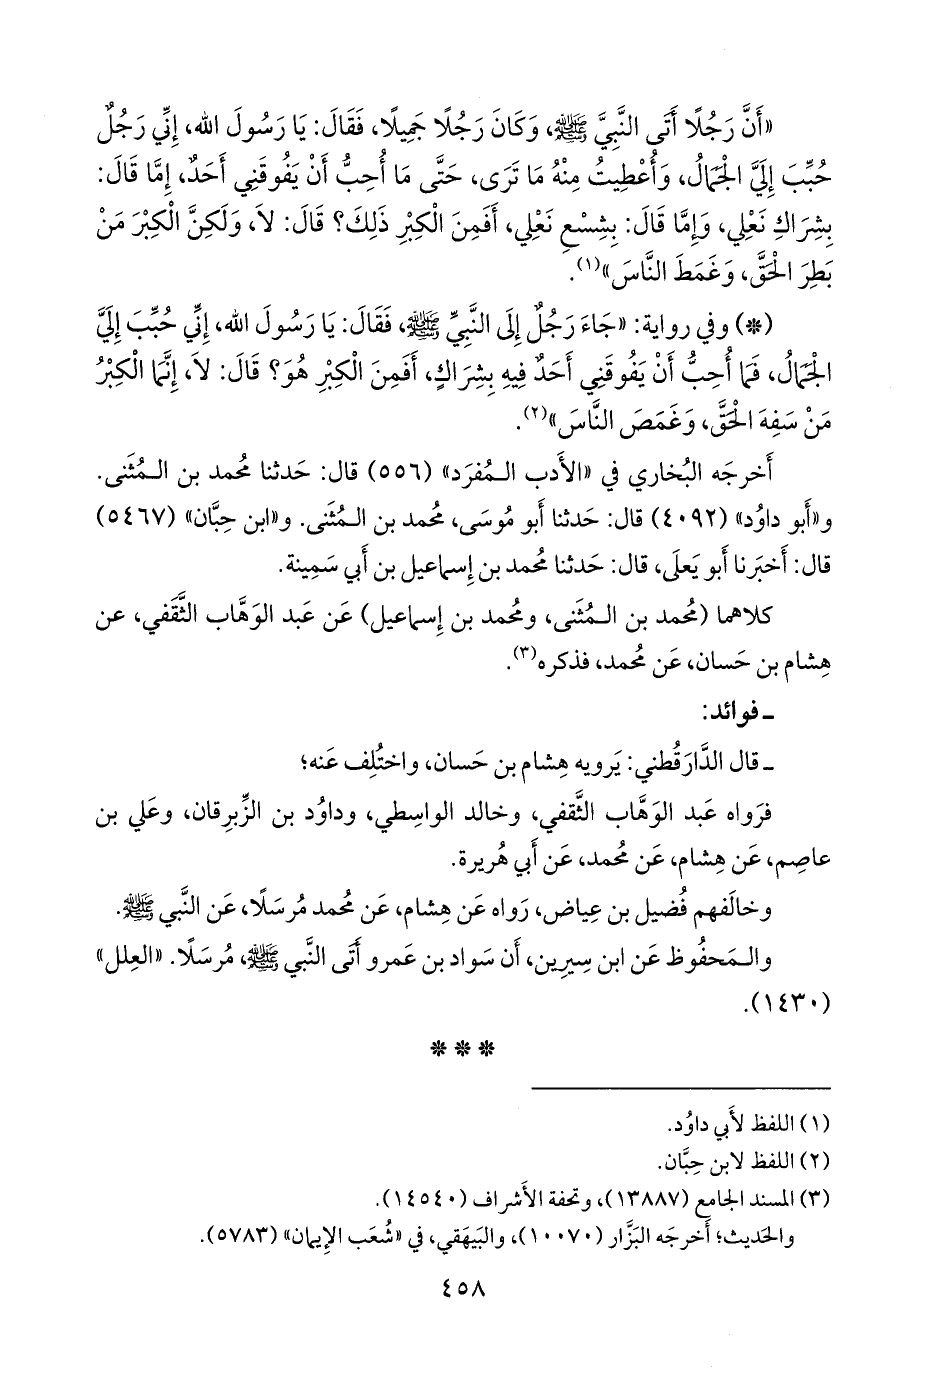 «أَنَّ رَجُلًا أَتَى النَّبِيَّ ﷺ، وَكَانَ رَجُلًا جَمِيلًا، فَقَالَ: يَا رَسُولَ الله، إِنِّي رَجُلٌ
حُبِّبَ إِلَيَّ الْجَمَالُ، وَأُعْطِيتُ مِنْهُ مَا تَرَى، حَتَّى مَا أُحِبُّ أَنْ يَفُوقَنِي أَحَدٌ، إِمَّا قَالَ:
بِشِرَاكِ نَعْلِي، وَإِمَّا قَالَ: بِشِسْعِ نَعْلِي، أَفَمِنَ الْكِبْرِ ذَلِكَ؟ قَالَ: لاَ، وَلَكِنَّ الْكِبْرَ مَنْ
بَطِرَ الْحَقَّ، وَغَمَطَ النَّاسَ»(١).
(*) وفي رواية: «جَاءَ رَجُلٌ إِلَى النَّبِيِّ ﷺ، فَقَالَ: يَا رَسُولَ الله، إِنِّي حُبِّبَ إِلَيَّ
الْجَمَالُ، فَمَا أُحِبُّ أَنْ يَفُوقَنِي أَحَدٌ فِيهِ بِشِرَاكٍ، أَفَمِنَ الْكِبْرِ هُوَ؟ قَالَ: لاَ، إِنَّمَا الْكِبْرُ
مَنْ سَفِهَ الْحَقَّ، وَغَمَصَ النَّاسَ»(٢).
أَخرجَه البُخاري في «الأَدب المُفرَد» (٥٥٦) قال: حَدثنا مُحمد بن المُثَنى.
و«أَبو داوُد» (٤٠٩٢) قال: حَدثنا أَبو مُوسَى، مُحمد بن المُثَنى. و«ابن حِبَّان» (٥٤٦٧)
قال: أَخبَرنا أَبو يَعلَى، قال: حَدثنا مُحمد بن إِسماعيل بن أَبي سَمِينة.
كلاهما (مُحمد بن المُثَنى، ومُحمد بن إِسماعيل) عَن عَبد الوَهَّاب الثَّقَفي، عن
هِشام بن حَسان، عَن مُحمد، فذكره(٣).
ـ فوائد:
ـ قال الدَّارَقُطني: يَرويه هِشام بن حَسان، واختُلِف عَنه؛
فرَواه عَبد الوَهَّاب الثَّقفي، وخالد الواسِطي، وداوُد بن الزِّبرِقان، وعَلي بن
عاصِم، عَن هِشام، عَن مُحمد، عَن أَبي هُريرة.
وخالَفهم فُضيل بن عِياض، رَواه عَن هِشام، عَن مُحمد مُرسَلًا، عَن النَّبي ﷺ.
والمَحفُوظ عَن ابن سِيرِين، أَن سَواد بن عَمرو أَتَى النَّبي ﷺ، مُرسَلًا. «العِلل»
(١٤٣٠).
* * *
(١) اللفظ لأَبي داوُد.
(٢) اللفظ لابن حِبَّان.
(٣) المسند الجامع (١٣٨٨٧)، وتحفة الأَشراف (١٤٥٤٠).
والحَديث؛ أَخرجَه البَزَّار (١٠٠٧٠)، والبَيهَقي، في «شُعَب الإِيمان» (٥٧٨٣).
٤٥٨